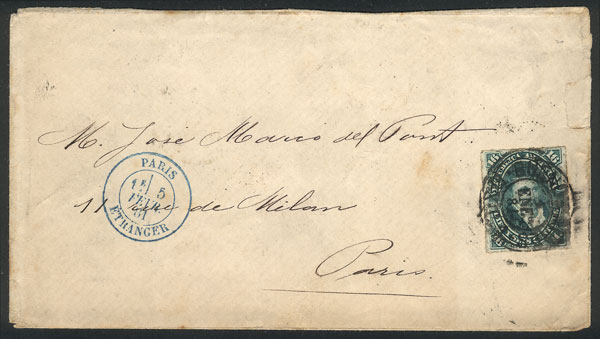 M. José Marco del Pont.
11 rue de Milan
Paris.
PARIS
5
FEVR
ETRANGER
16 16